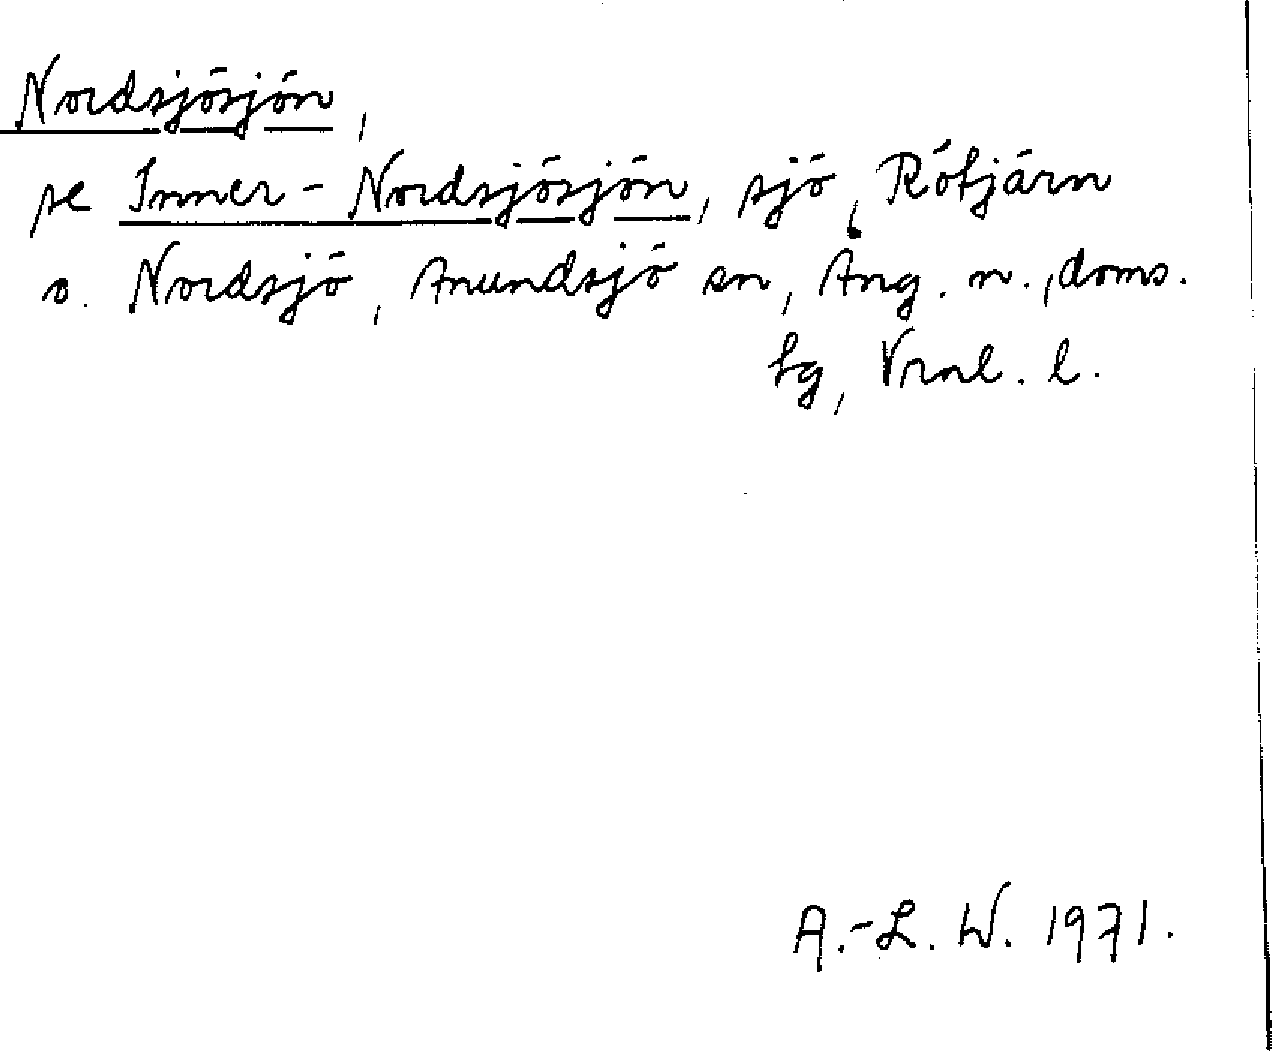 Nordsjösjön,
se Inner-Nordsjösjön, sjö, Rötjärn
o. Nordsjö, Anundsjö sn, Ång. n., doms.
lg, Vrnl. l.
A.-L. W. 1971.